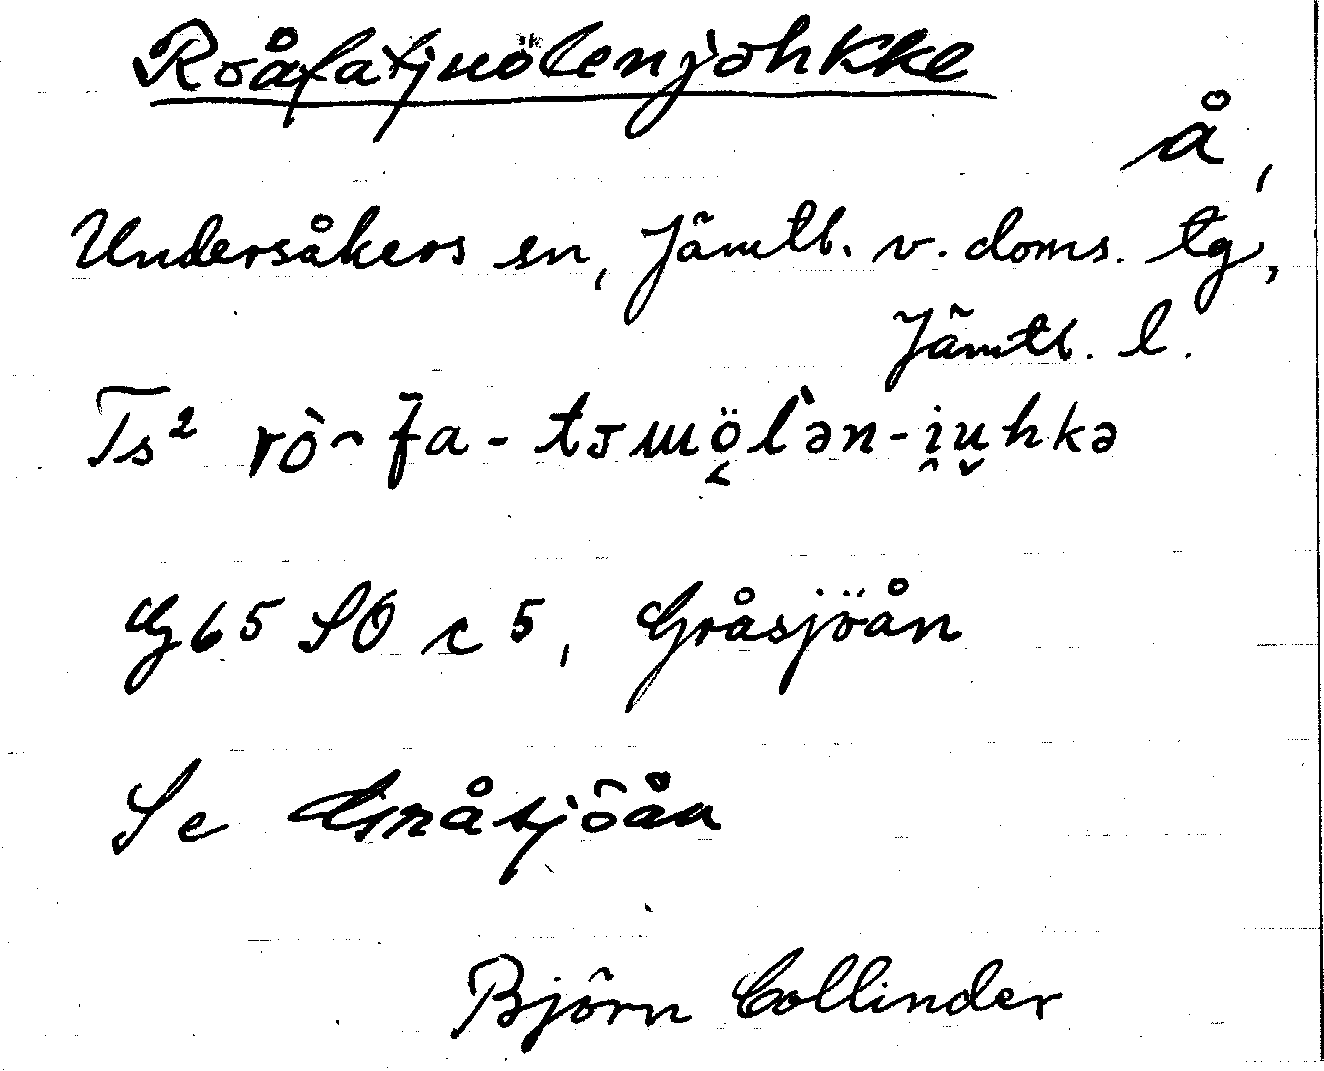 Roåfatjuölenjohkke
å,
Undersåkers sn, Jämtl. v. doms. tg,
Jämtl. l.
Ts² rò̄fa-tsɯö̜l'ən-i̯u̯hkə
G65 SO c 5, Gråsjöån
Se Gråsjöån
Björn Collinder